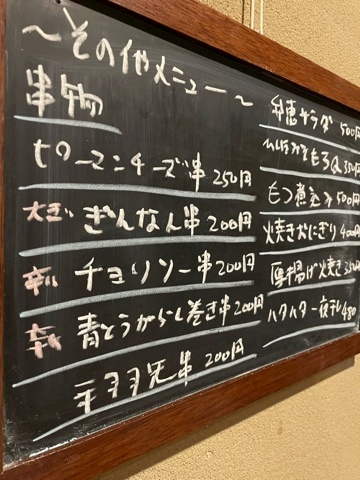 〜その他メニュー〜
串物
ピーマンチーズ串 250円
大きい ぎんなん串 200円
辛い チョリソー串 200円
辛い 青とうがらし巻き串 200円
手羽先串 200円
サラダ 500円
もろQ 350円
もつ煮込み 500円
焼きおにぎり 400円
厚揚げ焼き 350円
ハタハタ一夜干し 480